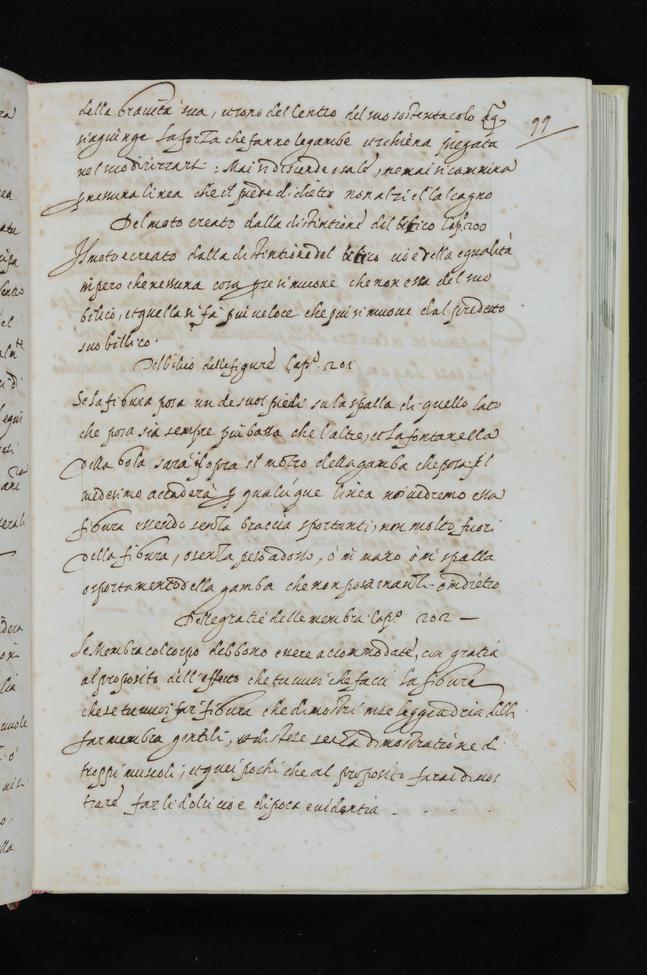 della gravità sua, verso del centro del suo sostentacolo
99
s'aggiunge la forza che fanno le gambe et schiena piegata
nel suo dirizzarsi: Mai si discende o sale, ne mai si camina
p nessuna linea che il piede di dietro non alzi il calcagno
Del moto creato dalla distintione del bilico Capº 200
Il moto e creato dalla distintione del bilico cioè della equalità
impero che nessuna cosa p se si muove che non esca del suo
bilico, et quella si fa più veloce che più si muove dal predetto
suo billico.
Del bilico delle figure Capº. 201
Se la figura posa un de suoi piedi su la spalla di quello lato
che posa sia sempre più bassa che l'altra, et la fontanella
della gola sarà sopra il mezzo della gamba che posa, il
medesimo accaderà p qualuque linea noi vedremo essa
figura essendo senza braccia sportanti, non molto fuori
della figura, o senza peso adosso, ò in mano ò in spalla
o sportamento della gamba che non posa inanzi o indietro
Delle gratie delle membra Capº. 202 —
Le Membra col corpo debbono essere accommodate, con gratia
al proposito dell'effetto che tu vuoi che facci la figura
che se tu vuoi far figura che dimostri in se leggiadria debbi
far membra gentili, et distese senza dimostratione di
troppi muscoli; et quei pochi che al proposito farai dimos
trare farli dolci cioè di poca evidentia . - . -